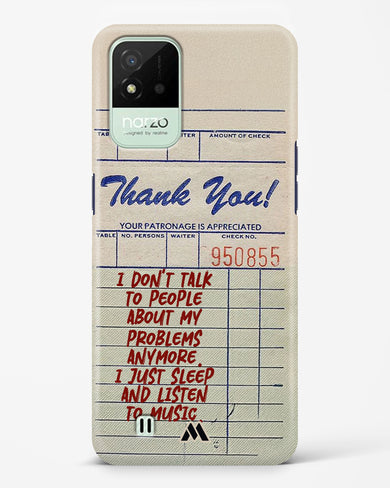 narzo
designed by realme
TAB
ITER
AMOUNT OF CHECK
Thank You!
YOUR PATRONAGE IS APPRECIATED
TABLE NO. PERSONS WAITER CHECK NO.
950855
I DON'T TALK
TO PEOPLE
ABOUT MY
PROBLEMS
ANYMORE.
I JUST SLEEP
AND LISTEN
TO MUSIC